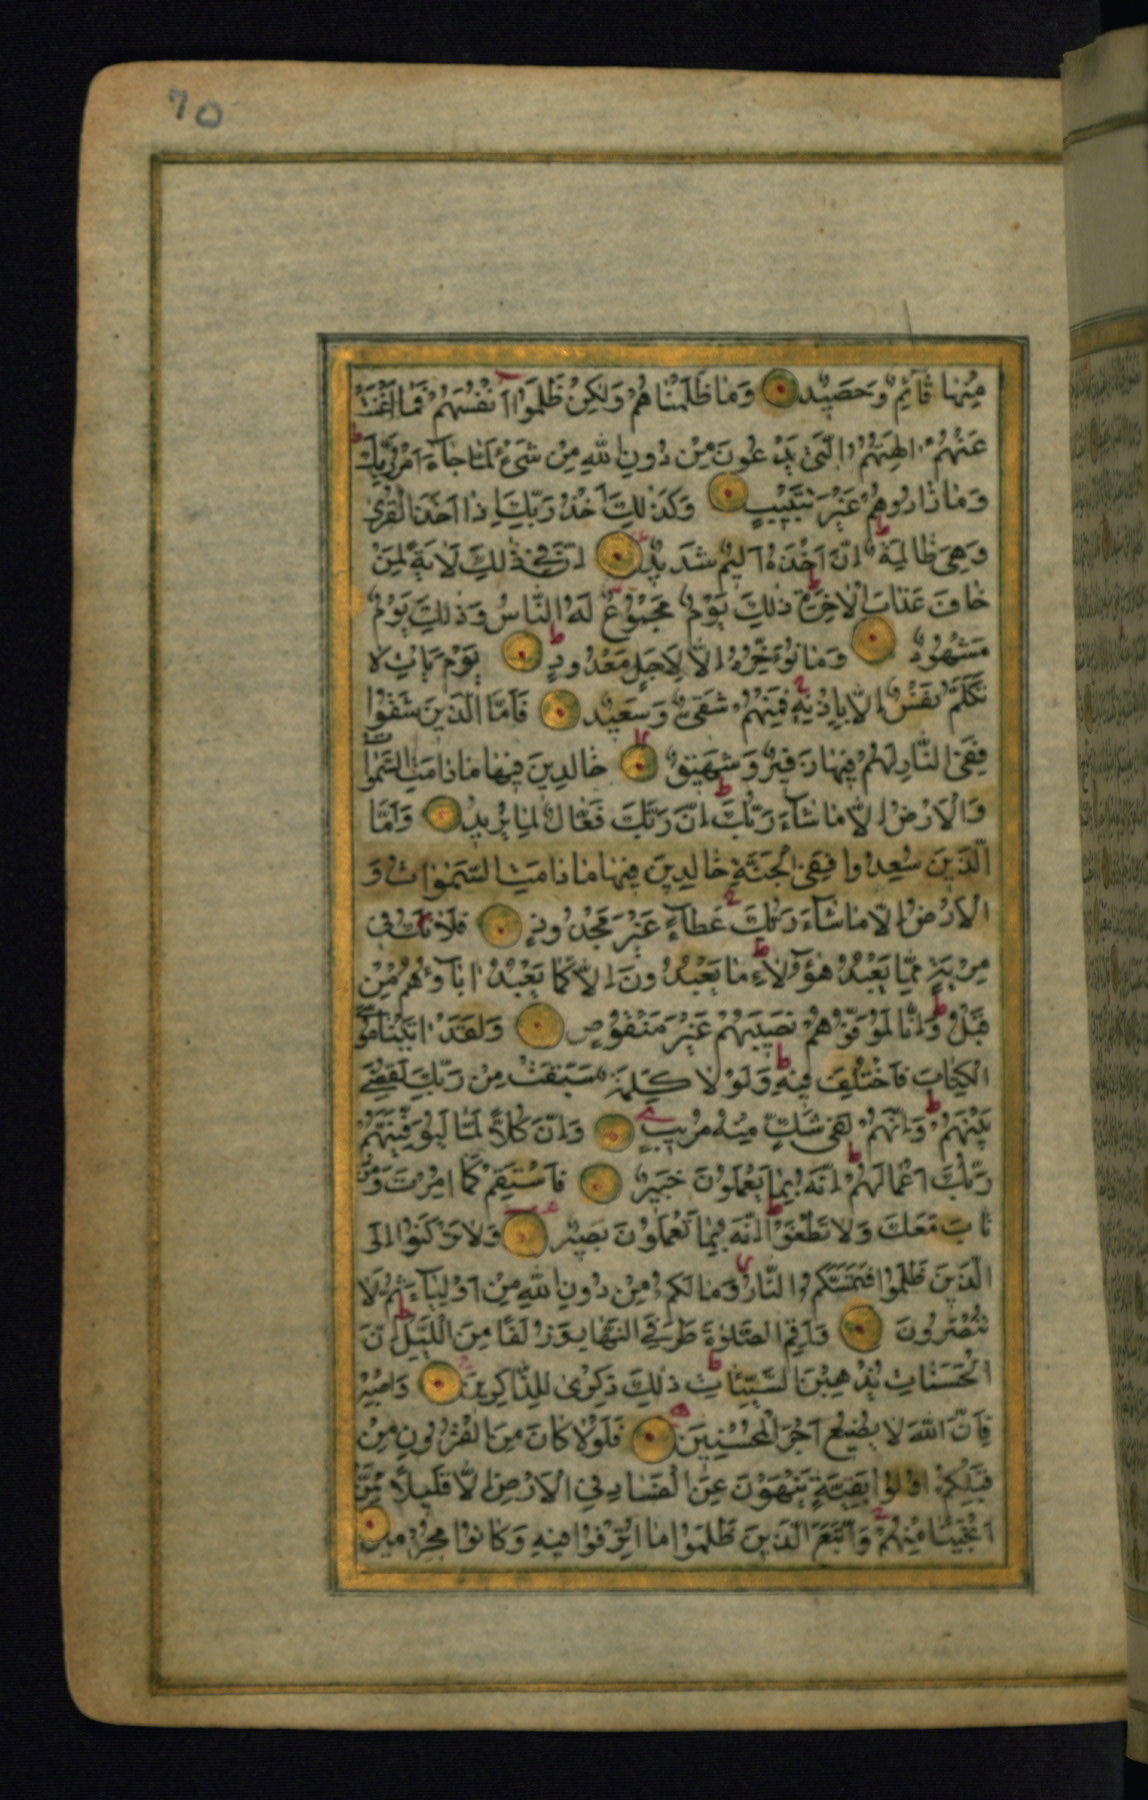 70
مِنْهَا قَآئِمٌ وَحَصِيدٌ وَمَا ظَلَمْنَاهُمْ وَلٰكِنْ ظَلَمُوا اَنْفُسَهُمْ فَمَا اَغْنَتْ
عَنْهُمْ اٰلِهَتُهُمُ الَّتِي يَدْعُونَ مِنْ دُونِ اللّٰهِ مِنْ شَيْءٍ لَمَّا جَآءَ اَمْرُ رَبِّكَ
وَمَا زَادُوهُمْ غَيْرَ تَتْبِيبٍ وَكَذٰلِكَ اَخْذُ رَبِّكَ اِذَا اَخَذَ الْقُرٰى
وَهِيَ ظَالِمَةٌ اِنَّ اَخْذَهُ اَلِيمٌ شَدِيدٌ اِنَّ فِي ذٰلِكَ لَاٰيَةً لِمَنْ
خَافَ عَذَابَ الْاٰخِرَةِ ذٰلِكَ يَوْمٌ مَجْمُوعٌ لَهُ النَّاسُ وَذٰلِكَ يَوْمٌ
مَشْهُودٌ وَمَا نُؤَخِّرُهُ اِلَّا لِاَجَلٍ مَعْدُودٍ يَوْمَ يَاْتِ لَا
تَكَلَّمُ نَفْسٌ اِلَّا بِاِذْنِهِ فَمِنْهُمْ شَقِيٌّ وَسَعِيدٌ فَاَمَّا الَّذِينَ شَقُوا
فَفِي النَّارِ لَهُمْ فِيهَا زَفِيرٌ وَشَهِيقٌ خَالِدِينَ فِيهَا مَا دَامَتِ السَّمٰوَاتُ
وَالْاَرْضُ اِلَّا مَا شَآءَ رَبُّكَ اِنَّ رَبَّكَ فَعَّالٌ لِمَا يُرِيدُ وَاَمَّا
الَّذِينَ سُعِدُوا فَفِي الْجَنَّةِ خَالِدِينَ فِيهَا مَا دَامَتِ السَّمٰوَاتُ وَ
الْاَرْضُ اِلَّا مَا شَآءَ رَبُّكَ عَطَآءً غَيْرَ مَجْذُوذٍ فَلَا تَكُ فِي
مِرْيَةٍ مِمَّا يَعْبُدُ هٰؤُلَآءِ مَا يَعْبُدُونَ اِلَّا كَمَا يَعْبُدُ اٰبَآؤُهُمْ مِنْ
قَبْلُ وَاِنَّا لَمُوَفُّوهُمْ نَصِيبَهُمْ غَيْرَ مَنْقُوصٍ وَلَقَدْ اٰتَيْنَا مُوسَى
الْكِتَابَ فَاخْتُلِفَ فِيهِ وَلَوْلَا كَلِمَةٌ سَبَقَتْ مِنْ رَبِّكَ لَقُضِيَ
بَيْنَهُمْ وَاِنَّهُمْ لَفِي شَكٍّ مِنْهُ مُرِيبٍ وَاِنَّ كُلًّا لَمَّا لَيُوَفِّيَنَّهُمْ
رَبُّكَ اَعْمَالَهُمْ اِنَّهُ بِمَا يَعْمَلُونَ خَبِيرٌ فَاسْتَقِمْ كَمَا اُمِرْتَ وَمَنْ
تَابَ مَعَكَ وَلَا تَطْغَوْا اِنَّهُ بِمَا تَعْمَلُونَ بَصِيرٌ وَلَا تَرْكَنُوا اِلَى
الَّذِينَ ظَلَمُوا فَتَمَسَّكُمُ النَّارُ وَمَا لَكُمْ مِنْ دُونِ اللّٰهِ مِنْ اَوْلِيَآءَ ثُمَّ لَا
تُنْصَرُونَ وَاَقِمِ الصَّلٰوةَ طَرَفَيِ النَّهَارِ وَزُلَفًا مِنَ اللَّيْلِ اِنَّ
الْحَسَنَاتِ يُذْهِبْنَ السَّيِّئَاتِ ذٰلِكَ ذِكْرٰى لِلذَّاكِرِينَ وَاصْبِرْ
فَاِنَّ اللّٰهَ لَا يُضِيعُ اَجْرَ الْمُحْسِنِينَ فَلَوْلَا كَانَ مِنَ الْقُرُونِ مِنْ
قَبْلِكُمْ اُولُوا بَقِيَّةٍ يَنْهَوْنَ عَنِ الْفَسَادِ فِي الْاَرْضِ اِلَّا قَلِيلًا مِمَّنْ
اَنْجَيْنَا مِنْهُمْ وَاتَّبَعَ الَّذِينَ ظَلَمُوا مَا اُتْرِفُوا فِيهِ وَكَانُوا مُجْرِمِينَ